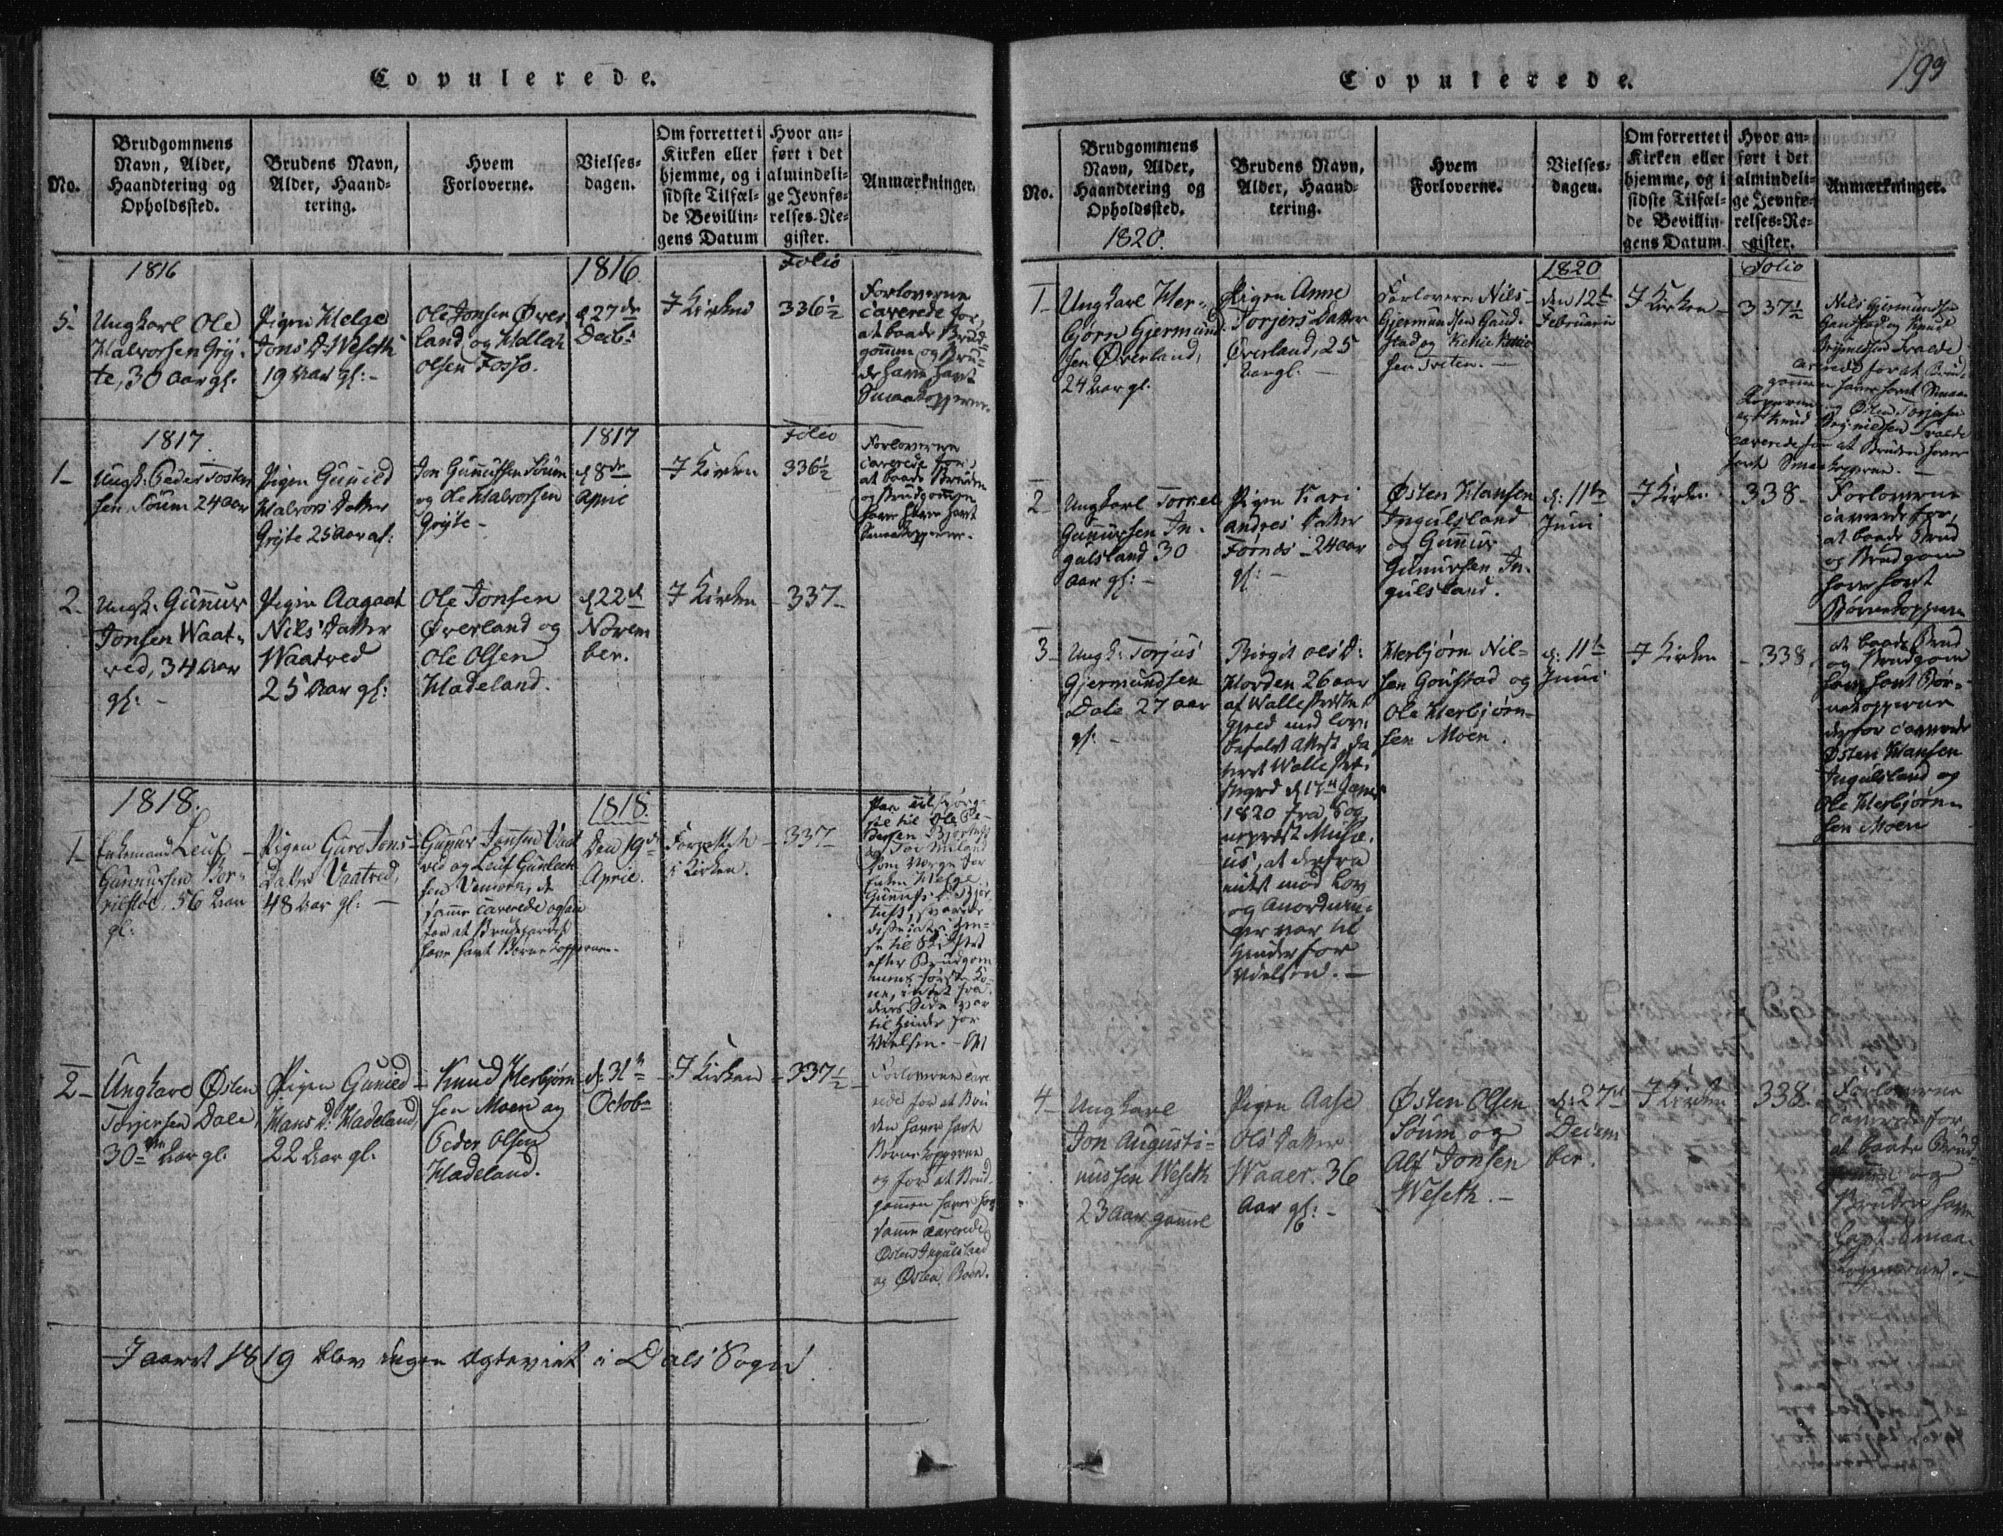 Copulerede.
No.
Brudgommens
Navn, Alder,
Haandtering og
Opholdssted.
Brudens Navn,
Alder, Haand-
tering.
Hvem
Forloverne.
Vielses-
dagen.
Om forrettet i
Kirken eller
hjemme, og i
sidste Tilfæl-
de Bevillin-
gens Datum
Hvor an-
ført i det
almindeli-
ge Jevnfø-
relses-Re-
gister.
Anmærkninger.
1816
1816
Folio
5
Ungkarl Ole
Halvorsen Gry-
te, 30 Aar gl.
Pigen Helge
Jons D. Weseth
19 Aar gl:
Ole Jonsen Över
land og
Olsen Fosso.
d 27de
Decb:
I Kirken
336½
Forloverne
caverede for,
at baade Brud-
gommen og Bru-
den have havt
Smaakopperne.
1817
1817
Folio
1
Ungk: Peder Tosten
sen Söum 24 Aar
Pigen Guneld
Halvors Datter
Gryte 25 Aar gl:
Jon Gunnufsen Söum
og Ole Halvorsen
Gryte
d 8de
April
I Kirken
336½
Forloverne
caverede for,
at baade Bruden
og Brudgommen
have havt
Smaakopperne.
2
Ungk: Gunnur
Jonsen Waat-
ved, 34 Aar
gl:
Pigen Aagaat
Nils' Datter
Waatved
25 Aar gl:
Ole Jonsen
Överland og
Ole Olsen
Hadeland.
d 22d
Novem
ber.
I Kirken
337
1818.
1818.
1
Enkemand Leuf
Gunnufsen
56 Aar
gl.
Pigen Guro Jons
Datter Vaatved,
48 Aar gl:
Gunnur Jonsen Vaat
ved og Leuf
sen Vemork, de
samme caverede ogsaa
for at Brudefolket
have havt Börnekopperne.
Den 19de
April.
Forrettet
i Kirken.
337
til Ole Pe-
dersen
som Verge for
Enken Helge
efter Brudgom
mens förste Ko-
ne, intet fra
deres Side var
til Hinder for
Vielsen.
2
Ungkarl Östen
Torjersen Dale,
30 Aar gl.
Pigen Guneld
Hans D: Hadeland,
22 Aar gl.
Knud Herbjörn
sen Moen og
Peder Olsen
Hadeland.
d: 31te
Octobr
I Kirken
337½
Forloverne cave
rede for at Bru
den have havt
Börnekopperne
og for at Brud
gommen have
samme caverede
Östen Ingulsland
og Östen Boen.
I aaret 1819 blev ingen Ægteviet i Dals Sogn
193
Copulerede.
No.
Brudgommens
Navn, Alder,
Haandtering og
Opholdssted.
1820.
Brudens Navn,
Alder, Haand-
tering.
Hvem
Forloverne.
Vielses-
dagen.
Om forrettet i
Kirken eller
hjemme, og i
sidste Tilfæl-
de Bevillin-
gens Datum
Hvor an-
ført i det
almindeli-
ge Jevnfø-
relses-Re-
gister.
Anmærkninger.
1820
Folio
1
Ungkarl Her-
bjorn Gjermund
sen Överland,
24 Aar gl.
Pigen Anne
Torjers Datter
Överland, 25
Aar gl.
Forlovere Nils
Gjermundsen Gaud-
stad og
sen Tveten.
den 12te
Februarii
I Kirken
337½
Nils Gjermundsen
Gaustad og Knud
caverede for at Brud-
gommen have havt Smaa-
kopperne og Östen Torjersen
og Knud
caverede for at Bruden have
havt Smaakopperne.
2
Ungkarl Tornel
Gunnursen In-
gulsland 30
Aar gl:
Pigen Kari
Andres' Datter
Förnes 24 Aar
gl:
Östen Hansen
Ingulsland
og Gunnur
Gunnursen In-
gulsland.
d: 11te
Juni
I Kirken
338
Forloverne
caverede for,
at baade Brud
og Brudgom
have havt
Börnekopperne
3
Ungk: Torjus
Gjermundsen
Dale 27 Aar
gl:
Birgit Ols D:
Horden 26 Aar
af Walle Præste
gjeld med lov-
befalet Attest, da
teret Walle Præ-
stegrd d 17de
1820 fra Sog
nepræst
us, at derfra
intet mod Lov
og Anordnin-
ger var til
Hinder for
Vielsen.
Herbjörn Nil-
sen Goustad og
Ole Herbjörn-
sen Moen.
d: 11te
Juni
I Kirken
338.
at baade Brud
og Brudgom
have havt Bör-
nekopperne
derfor caverede
Östen Hansen
Ingulsland og
Ole Herbjörn
sen Moen
4
Ungkarl
Jon Augusti-
nussen Weseth
23 Aar gamel
Pigen Aase
Ols Datter
Waaer 36
Aar gl:
Östen Olsen
Söum og
Alf Jonsen
Weseth.
d: 27de
Decem
ber.
I Kirken
338
Forloverne
caverede for,
at baade Brud-
gommen og
Bruden have
havt Smaa-
kopperne.